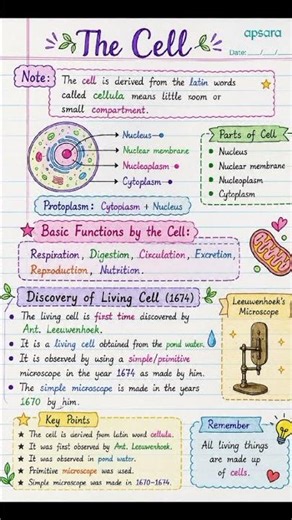 apsara
The Cell
Date: __/__/__
Note:
The cell is derived from the latin words
called cellula means little room or
small compartment.
Nucleus
Nuclear membrane
Nucleoplasm
Cytoplasm
Parts of Cell
Nucleus
Nuclear membrane
Nucleoplasm
Cytoplasm
Protoplasm: Cytoplasm + Nucleus
Basic Functions by the Cell:
Respiration, Digestion, Circulation, Excretion,
Reproduction, Nutrition.
Discovery of Living Cell (1674)
The living cell is first time discovered by
Ant. Leeuwenhoek.
It is a living cell obtained from the pond water.
It is observed by using a simple/primitive
microscope in the year 1674 as made by him.
The simple microscope is made in the years
1670 by him.
Leeuwenhoek's
Microscope
Key Points
The cell is derived from latin word cellula.
It was first observed by Ant. Leeuwenhoek.
It was observed in pond water.
Primitive microscope was used.
Simple microscope was made in 1670-1674.
Remember
All living things
are made up
of cells.